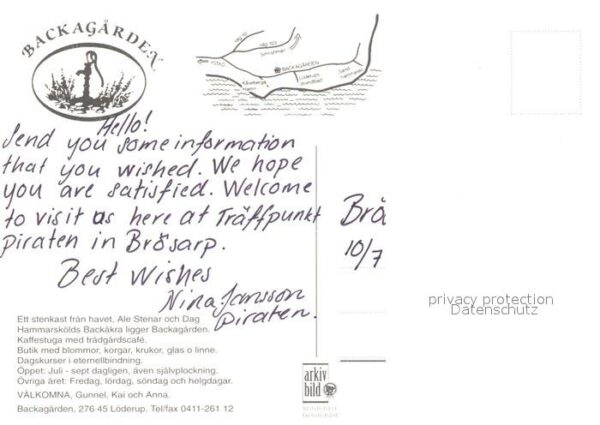 BACKAGÅRDEN
BACKAGÅRDEN
Hello!
Send you some information
that you wished. We hope
you are satisfied. Welcome
to visit us here at Träffpunkt
piraten in Brösarp.
Best Wishes
Nina Jansson
piraten.
Brö
10/7
privacy protection
Datenschutz
Ett stenkast från havet, Ale Stenar och Dag
Hammarskölds Backåkra ligger Backagården.
Kaffestuga med trädgårdscafé.
Butik med blommor, korgar, krukor, glas o linne.
Dagskurser i eternellbindning.
Öppet: Juli - sept dagligen, även självplockning.
Övriga året: Fredag, lördag, söndag och helgdagar.
VÄLKOMNA, Gunnel, Kai och Anna.
Backagården, 276 45 Löderup. Tel/fax 0411-261 12
arkiv
bild